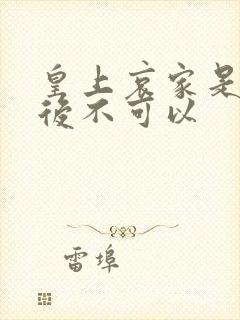 皇上哀家是
後不可以
雷埠